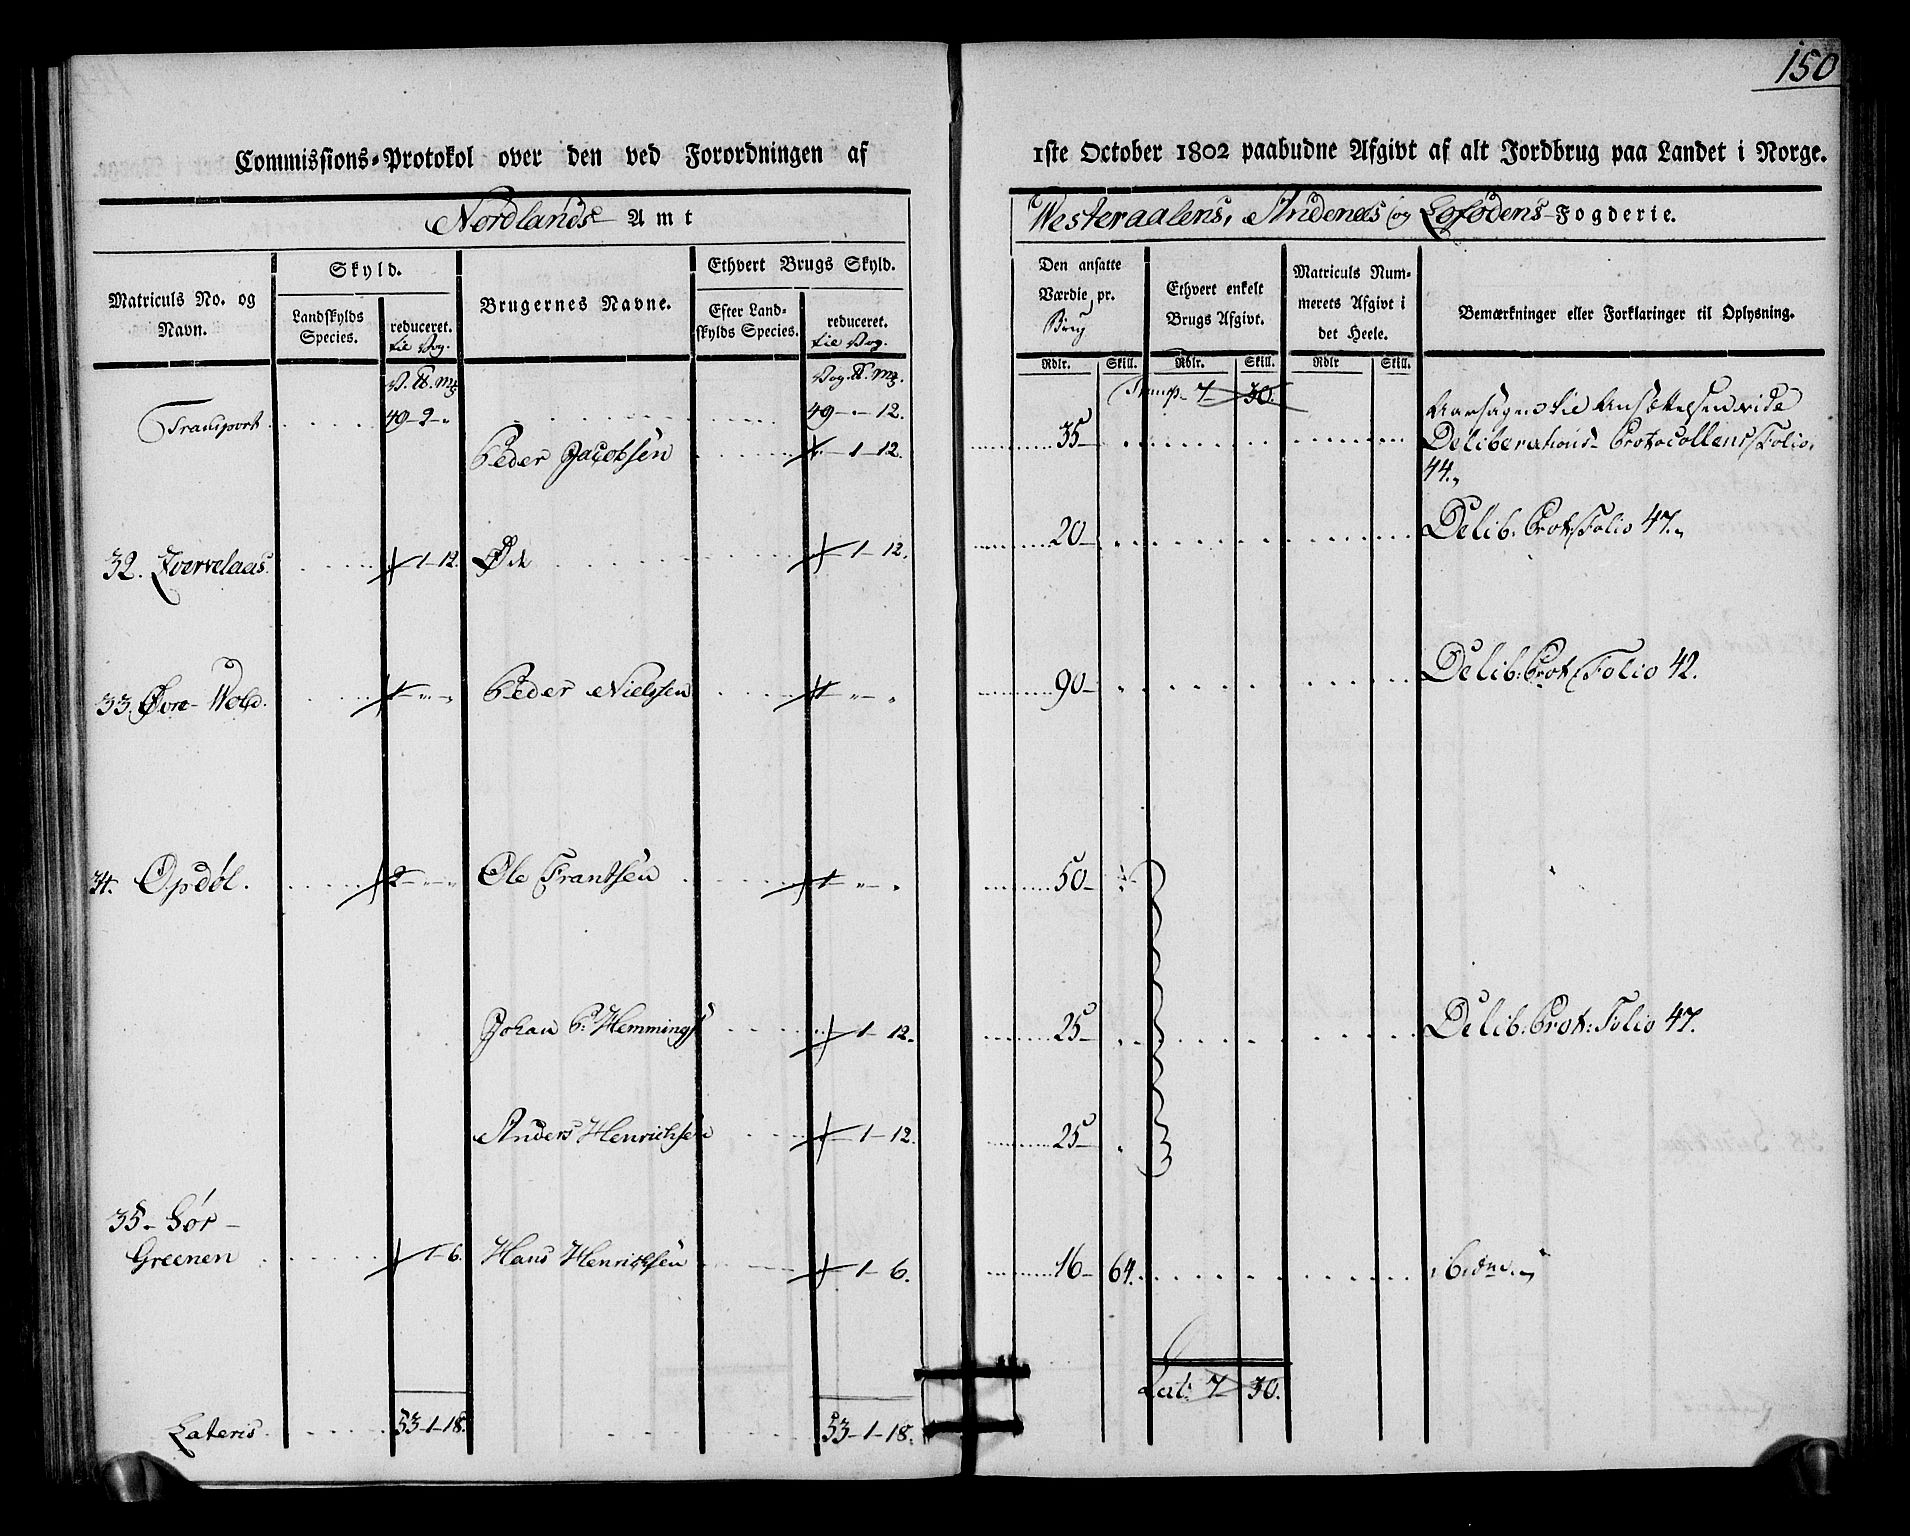 150
Commissions-Protokol over den ved Forordningen af 1ste October 1802 paabudne Afgivt af alt Jordbrug paa Landet i Norge.
Nordlands Amt
Westeraalens, Andenæs og Lofodens Fogderie.
Matriculs No. og Navn.
Skyld.
Landskylds Species.
reduceret. til Vog.
Brugernes Navne.
Ethvert Brugs Skyld.
Efter Landskylds Species.
reduceret. til Vog.
Den ansatte Værdie pr. Brug
Ethvert enkelt Brugs Afgivt.
Matriculs Nummerets Afgivt i det Heele.
Bemærkninger eller Forklaringer til Oplysning.
Rdlr. Skill. Rdlr. Skill. Rdlr Skill.
V. ℔. mk. Vog. ℔. mk.
Transp. 7 30.
Transport 49-2-" 49-"-12.
Peder Jacobsen 1-12. 35 Aarsagen til Ansættelsen vide
Deliberations Protocollens Folio
44.
32. 1-12. Øde 1-12. 20 Delib: Prot: Folio 47.
33. Øvre Wold. 1-"-" Peder Nielssen 1-"-" 90 Delib: Prot: Folio 42.
34. Opdøl. 2-"-" Ole Frantsen 1-"-" 50
Johan P: Hemmings 1-12. 25 Delib: Prot: Folio 47.
Anders Henrichsen 1-12. 25
35 Sør
Greenen 1-6. Hans Henrichsen 1-6. 16 64. ibidm
Lat: 7 30.
Lateris 53-1-18. 53-1-18.